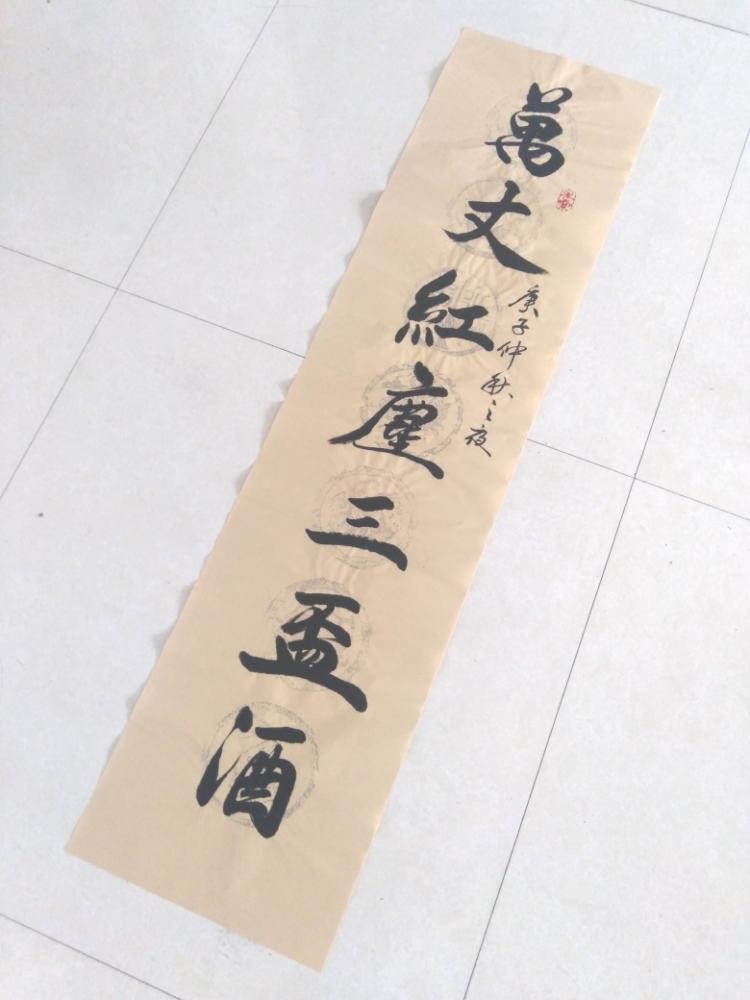 萬丈紅塵三盃酒
庚子仲秋之夜